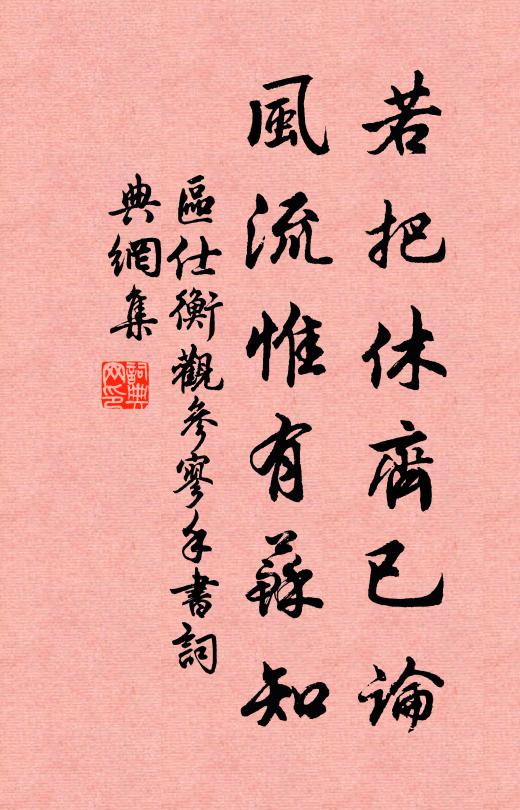 若把休齊已論
風流惟有蘇知
區仕衡觀參寥手書詞
典網集
詞典網印